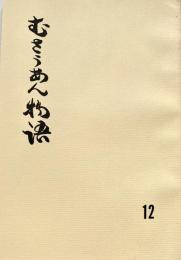 むさうあん物語
12